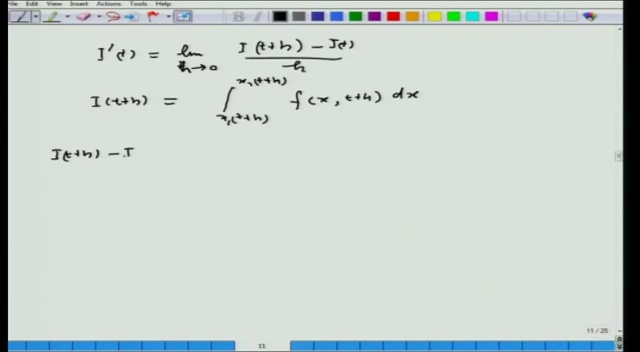 File Edit View Insert Actions Tools Help
I'(t) = lim h→0 (I(t+h) − I(t))/h
I(t+h) = ∫_{x₁(t+h)}^{x₂(t+h)} f(x, t+h) dx
I(t+h) − I
11 / 25
11